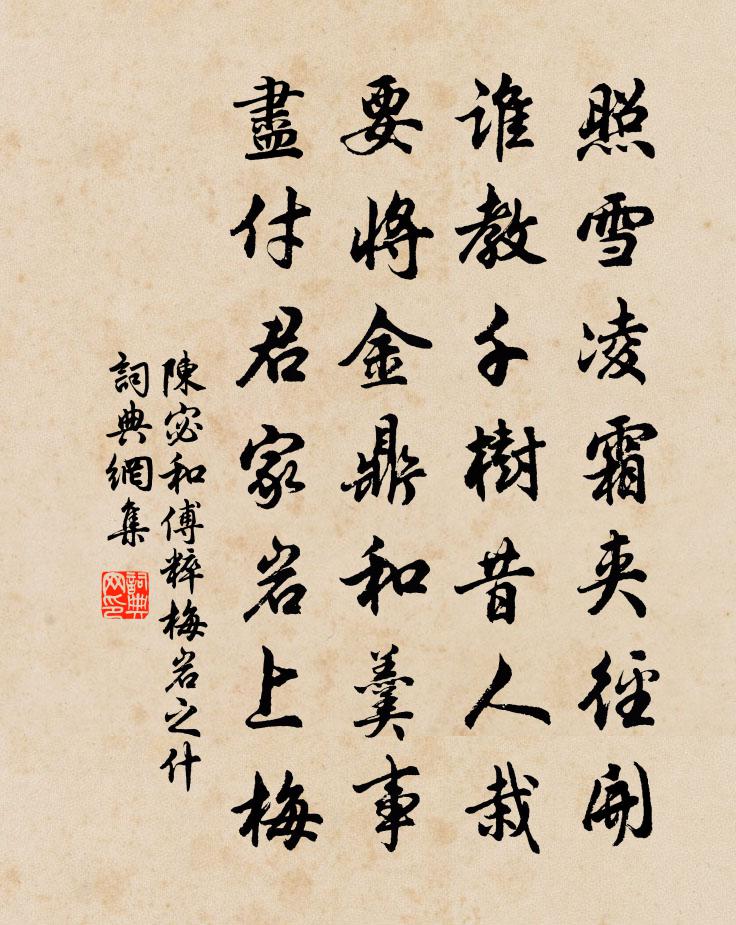 照雪凌霜夾徑開
誰教千樹昔人栽
要將金鼎和羹事
盡付君家岩上梅
陳宓和傅粹梅岩之什
詞典網集
詞典网印